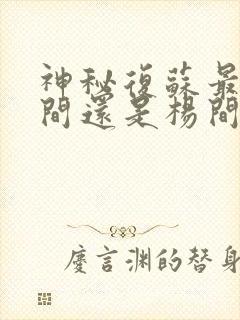 神秘復蘇最
間還是楊間
慶言淵的替身